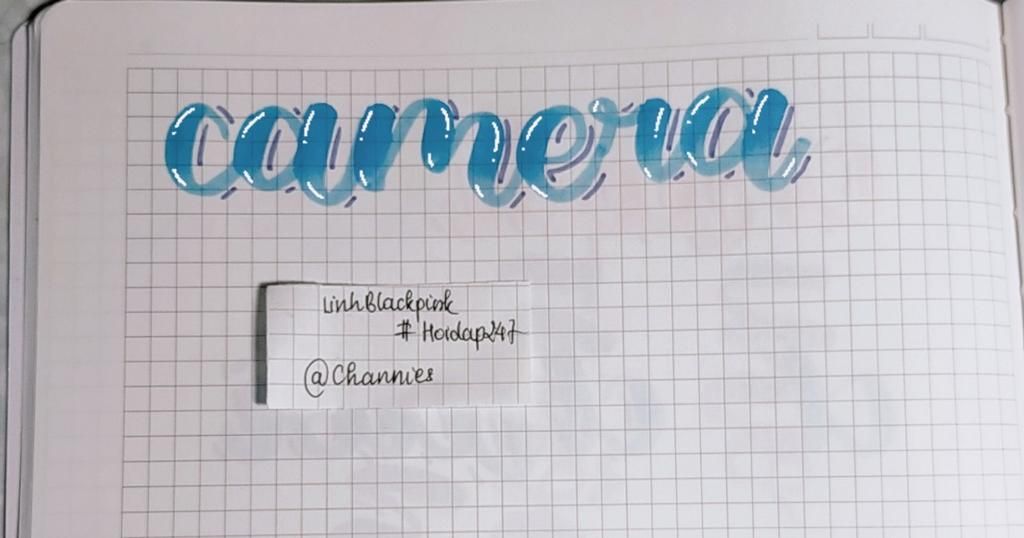 camera
LinhBlackpink
# Hoidap247
@Channies